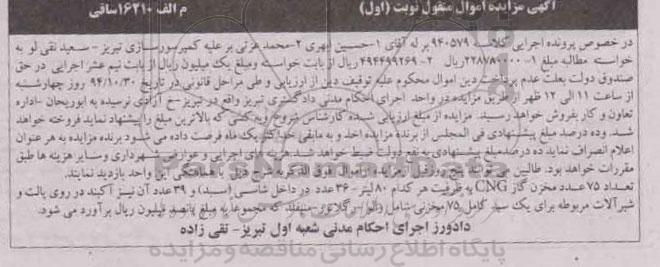 آگهی مزایده اموال منقول نوبت (اول) م الف ۱۶۲۱۰ساقی
در خصوص پرونده اجرایی کلاسه ۹۴۰۵۷۹ بر له آقای ۱-حسین ابهری ۲-محمد عزتی بر علیه کمپرسورسازی تبریز - سعید نقی لو به
خواسته مطالبه مبلغ ۱-۲۲۸۷۸۰۰۰۰ریال ۲- ۴۹۴۴۹۹۲۶۹ ریال از بابت خواسته ومبلغ یک میلیون ریال از بابت نیم عشر اجرایی در حق
صندوق دولت بعلت عدم پرداخت دین اموال محکوم علیه توقیف دین از ارزیابی و طی مراحل قانونی در تاریخ ۹۴/۱۰/۳۰ روز چهارشنبه
از ساعت ۱۱ الی ۱۲ ظهر از طریق مزایده در واحد اجرای احکام مدنی دادگستری تبریز واقع در تبریز-خ آزادی نرسیده به ابوریحان -اداره
تعاون و کار بفروش خواهد رسید. مزایده از مبلغ ارزیابی شده کارشناس شروع وبه کسی که بالاترین مبلغ را پیشنهاد نماید فروخته خواهد
شد. وده درصد مبلغ پیشنهادی فی المجلس از برنده مزایده اخذ و به مابقی حداکثر یک ماه فرصت داده می شود برنده مزایده به هر عنوان
اعلام انصراف نماید ده درصدمبلغ پیشنهادی به نفع دولت ضبط خواهد شد هزینه های اجرایی و عوارض شهرداری وسایر هزینه ها طبق
مقررات خواهد بود. طالبین می توانند پنج روز قبل از مزایده از اموال فوق الذکر به شرح ذیل با هماهنگی این واحد بازدید نمایند.
تعداد ۷۵عدد مخزن گاز CNG به ظرفیت هر کدام ۸۰لیتر -۳۶عدد در داخل شاسی (سبد) و ۳۹عدد آن نیز آکبند در روی پالت و
شیرآلات مربوطه برای یک سبد کامل ۷۵ مخزنی شامل منیفلد که مجموعا به مبلغ پانصد میلیون ریال برآورد می شود.
دادورز اجرای احکام مدنی شعبه اول تبریز- تقی زاده
پایگاه اطلاع رسانی مناقصه و مزایده